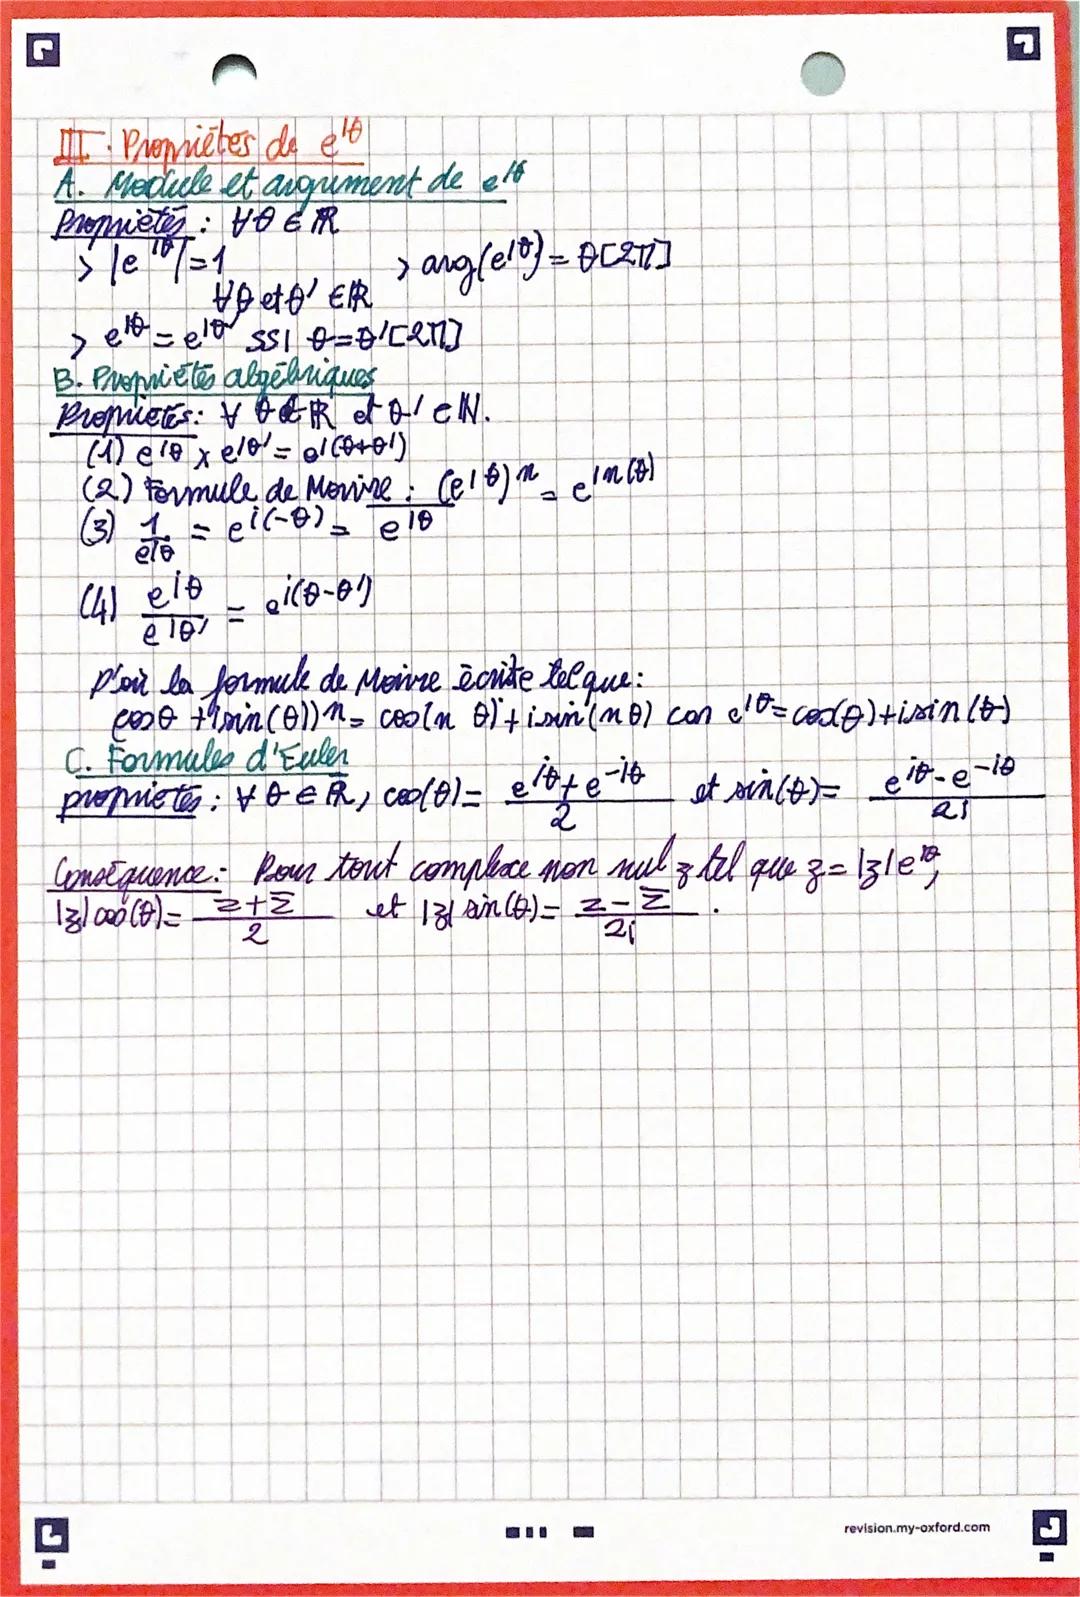 III. Propriétés de e^iθ
A. Module et argument de e^iθ
Propriétés : ∀θ ∈ ℝ
> |e^iθ| = 1 > arg(e^iθ) = θ[2π]
∀θ et θ' ∈ ℝ
> e^iθ = e^iθ' SSI θ = θ'[2π]
B. Propriétés algébriques
Propriétés : ∀ θ ∈ ℝ et θ' ∈ ℕ.
(1) e^iθ × e^iθ' = e^i(θ+θ')
(2) Formule de Moivre : (e^iθ)^n = e^in(θ)
(3) 1/e^iθ = e^i(-θ) = \overline{e^iθ}
(4) e^iθ/e^iθ' = e^i(θ-θ')
D'où la formule de Moivre écrite tel que :
cosθ + isin(θ))^n = cos(n θ) + isin(nθ) car e^iθ = cos(θ) + isin(θ)
C. Formules d'Euler
propriétés : ∀ θ ∈ ℝ, cos(θ) = (e^iθ + e^-iθ)/2 et sin(θ) = (e^iθ - e^-iθ)/2i
Conséquence : Pour tout complexe non nul z tel que z = |z|e^iθ,
|z|cos(θ) = (z + z̅)/2 et |z|sin(θ) = (z - z̅)/2i .
revision.my-oxford.com